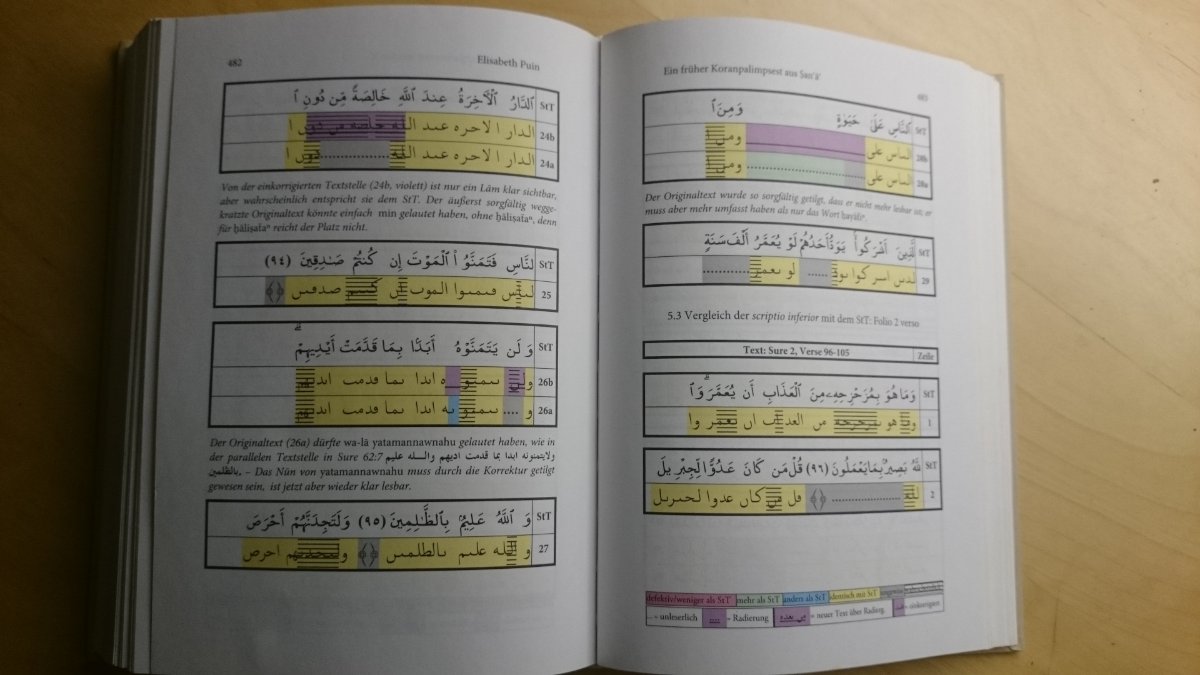 482
Elisabeth Puin
ٱلدَّارُ ٱلْأَخِرَةُ عِندَ ٱللَّهِ خَالِصَةً مِّن دُونِ ٱ StT
الدار ا لاحره عىد الله خلصه مں دوں ا 24b
الدار ا لاحره عىد الله................دوں ا 24a
Von der einkorrigierten Textstelle (24b, violett) ist nur ein Lām klar sichtbar,
aber wahrscheinlich entspricht sie dem StT. Der äußerst sorgfältig wegge-
kratzte Originaltext könnte einfach min gelautet haben, ohne ḫāliṣatan, denn
für ḫāliṣatan reicht der Platz nicht.
لنَّاسِ فَتَمَنَّوُ ا۟ ٱلْمَوْتَ إِن كُنتُمْ صَـٰدِقِينَ (٩٤) StT
لىاس فىمىوا الموٮ اں كىىم صدڡىں ﴿﴾ 25
وَ لَن يَتَمَنَّوْهُ أَبَدًۢا بِمَا قَدَّمَتْ أَيْدِيهِمْ ۗ StT
ولں ىىمىو ه اىدا ىما ڡدمٮ اىدىهم 26b
و .... ىىمىو ىه اىدا ىما ڡدمٮ اىدىهم 26a
Der Originaltext (26a) dürfte wa-lā yatamannawnahu gelautet haben, wie in
der parallelen Textstelle in Sure 62:7 ولايتمنونه ابدا بما قدمت اديهم والـله عليم
بالظلمين. – Das Nūn von yatamannawnahu muss durch die Korrektur getilgt
gewesen sein, ist jetzt aber wieder klar lesbar.
وَ ٱللَّهُ عَلِيمٌۢ بِٱلظَّـٰلِمِينَ (٩٥) وَلَتَجِدَنَّهُمْ أَحْرَصَ StT
و الله علىم ىالطلمىں ﴿﴾ ولىحدىهم احرص 27
Ein früher Koranpalimpsest aus Ṣanʿāʾ
483
ٱلنَّاسِ عَلَىٰ حَيَوٰةٍ وَمِنَ ٱ StT
الىاس على ومں ا 28b
الىاس على ........................ ومں ا 28a
Der Originaltext wurde so sorgfältig getilgt, dass er nicht mehr lesbar ist; er
muss aber mehr umfasst haben als nur das Wort ḥayātin.
لَّذِينَ أَشْرَكُوا۟ يَوَدُّ أَحَدُهُمْ لَوْ يُعَمَّرُ أَلْفَ سَنَةٍ StT
لدىں اسركوا ىود ...... لو ىعمر .............. 29
5.3 Vergleich der scriptio inferior mit dem StT: Folio 2 verso
Text: Sure 2, Verse 96-105 Zeile
وَمَا هُوَ بِمُزَحْزِحِهِۦ مِنَ ٱلْعَذَابِ أَن يُعَمَّرَ ۗ وَٱ StT
وما هو ىمرحرحه مں العدٮ اں ىعمر وا 1
للَّهُ بَصِيرٌۢ بِمَا يَعْمَلُونَ (٩٦) قُلْ مَن كَانَ عَدُوًّا لِّجِبْرِ يلَ StT
لله .................. ﴿﴾ ڡل مں كاں عدوا لحىرىل 2
defektiv/weniger als StT mehr als StT anders als StT identisch mit StT
... = unleserlich .... = Radierung = neuer Text über Radierg. = einkorrigiert